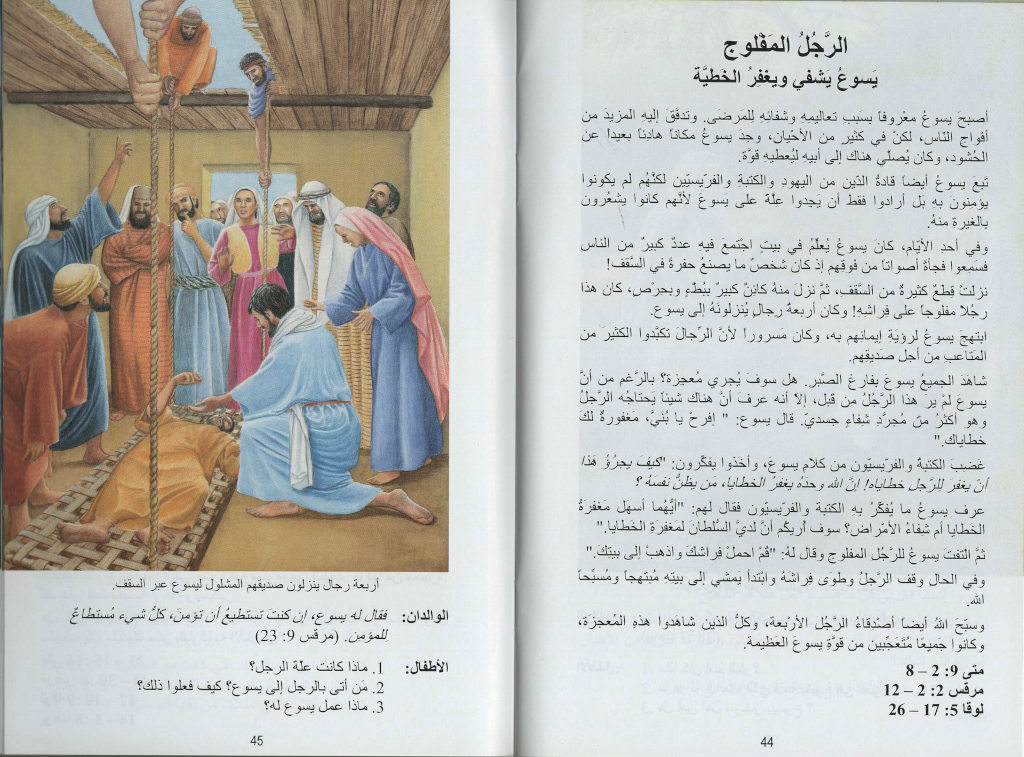 الرَّجُلُ المَفْلوج
يَسوعُ يَشفي ويغفِرُ الخَطيَّة
أصبح يسوعُ معْروفاً بسَببِ تعاليمِهِ وشفائِهِ لِلمَرضَى. وتدفَّقَ إليهِ المزيدَ من
أفواج النّاس، لكنّ في كثير من الأحْيان، وجدَ يسوعُ مكاناً هادِئاً بعيداً عن
الحُشود، وكان يُصلّي هناك إلى أبيهِ ليُعطيهِ قوَّة.
تَبِعَ يسوعُ أيضاً قادةُ الدّين من اليهودِ والكتبةِ والفرّيسيّين لكنّهُم لم يكونوا
يؤمنون بهِ بل أرادوا فقط أن يَجدوا عِلّة على يسوعَ لأنّهم كانوا يشعُرون
بالغيرةِ منهُ.
وفي أحدِ الأيّام، كانَ يسوعُ يُعلِّمُ في بيتٍ اجْتمعَ فيهِ عددٌ كبيرٌ من الناس
فسمِعوا فجأةً أصواتاً من فوقِهم إذ كان شخصٌ ما يصنعُ حفرةً في السَّقفِ!
نزلتْ قِطعٌ كثيرةٌ من السَّقفِ، ثمَّ نزلَ منهُ كائِنٌ كبيرٌ ببُطْءٍ وبحِرْص، كان هذا
رجُلا مفلوجاً على فِراشِهِ! وكان أربعةُ رجالٍ يُنزلونَهُ إلى يسوع.
ابتهجَ يسوعُ لرؤيَةِ إيمانِهم به، وكان مَسروراً لأنَّ الرِّجالَ تكبَّدوا الكثيرَ من
المَتاعبِ من أجل صديقِهم.
شاهَدَ الجميعُ يسوعَ بفارغ الصَّبر. هل سوفَ يُجري مُعجزة؟ بالرَّغم من أنَّ
يسوعَ لمْ ير هذا الرَّجُلُ من قبل، إلاّ أنه عرفَ أنَّ هناك شيئاً يَحتاجُه الرَّجُلُ
وهو أكثرُ منْ مُجرَّدِ شِفاءٍ جسديّ. قال يسوع: " إفرحْ يا بُنَيَّ، مَغفورةٌ لكَ
خطاياك."
غضبَ الكتبةُ والفرّيسيّون من كلام يسوعَ، وأخذوا يفكّرون: "كيفَ يجرُؤُ هَذا
أنْ يغفِرَ للرَّجل خطاياهُ! إنَّ الله وحدَهُ يغفرُ الخطايا، مَن يظنُّ نفسَهُ ؟
عرف يسوعُ ما يُفكّرُ بِهِ الكتبة والفرّيسيّون فقال لهم: "أيُّهُما أسهل مَغفرةُ
الخطايا أم شفاءُ الأمْراض؟ سوف أُريكُم أنَّ لديَّ السُّلطانَ لمَغفرةِ الخطايا."
ثمَّ التفتَ يسوعُ للرَّجُلِ المفلوج وقال لهُ: "قُمْ احملْ فِراشكَ واذهبْ إلى بيتِكَ."
وفي الحال وقفَ الرَّجلُ وطوى فِراشَهُ وابْتدأ يَمشي إلى بيتِهِ مُبتهجاً ومُسبِّحاً
الله.
وسبّحَ اللهُ أيضاً أصْدقاءُ الرَّجُل الأرْبعة، وكلُّ الذين شاهَدوا هذِهِ المُعجزة،
وكانوا جَميعًا مُتَعَجِّبين من قوَّةِ يسوعَ العَظيمة.
متى 9: 2 – 8
مرقس 2: 2 – 12
لوقا 5: 17 – 26
44
أربعة رجال ينزلون صديقهم المشلول ليسوع عبر السقف.
الوالدان: فقال له يسوع، إن كنتَ تستطيعُ أن تؤمنَ، كلُّ شيء مُستطاعٌ
للمؤمن. (مرقس 9: 23)
الأطفال: 1. ماذا كانت علّة الرجل؟
2. مَن أتى بالرجل إلى يسوع؟ كيف فعلوا ذلك؟
3. ماذا عمل يسوع له؟
45